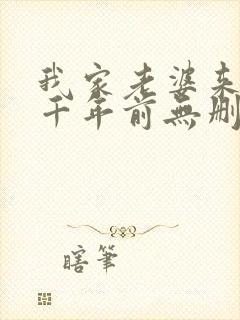 我家老婆来
千年前無删
瞎筆